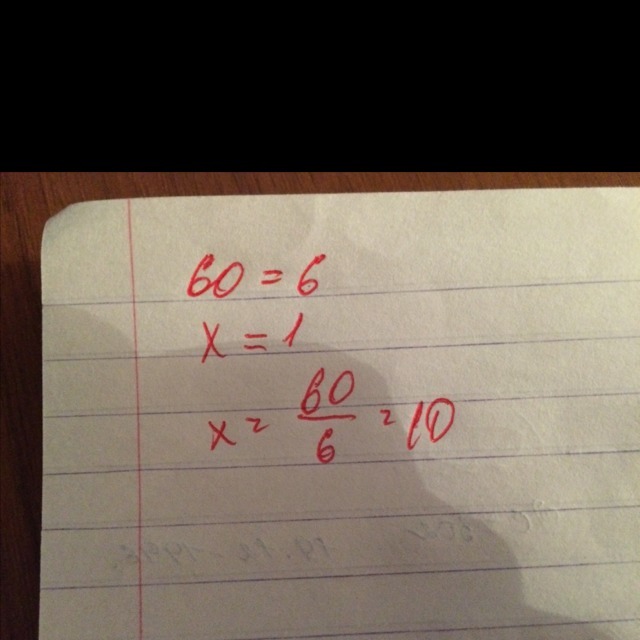 60 = 6
x = 1
x = 60/6 = 10